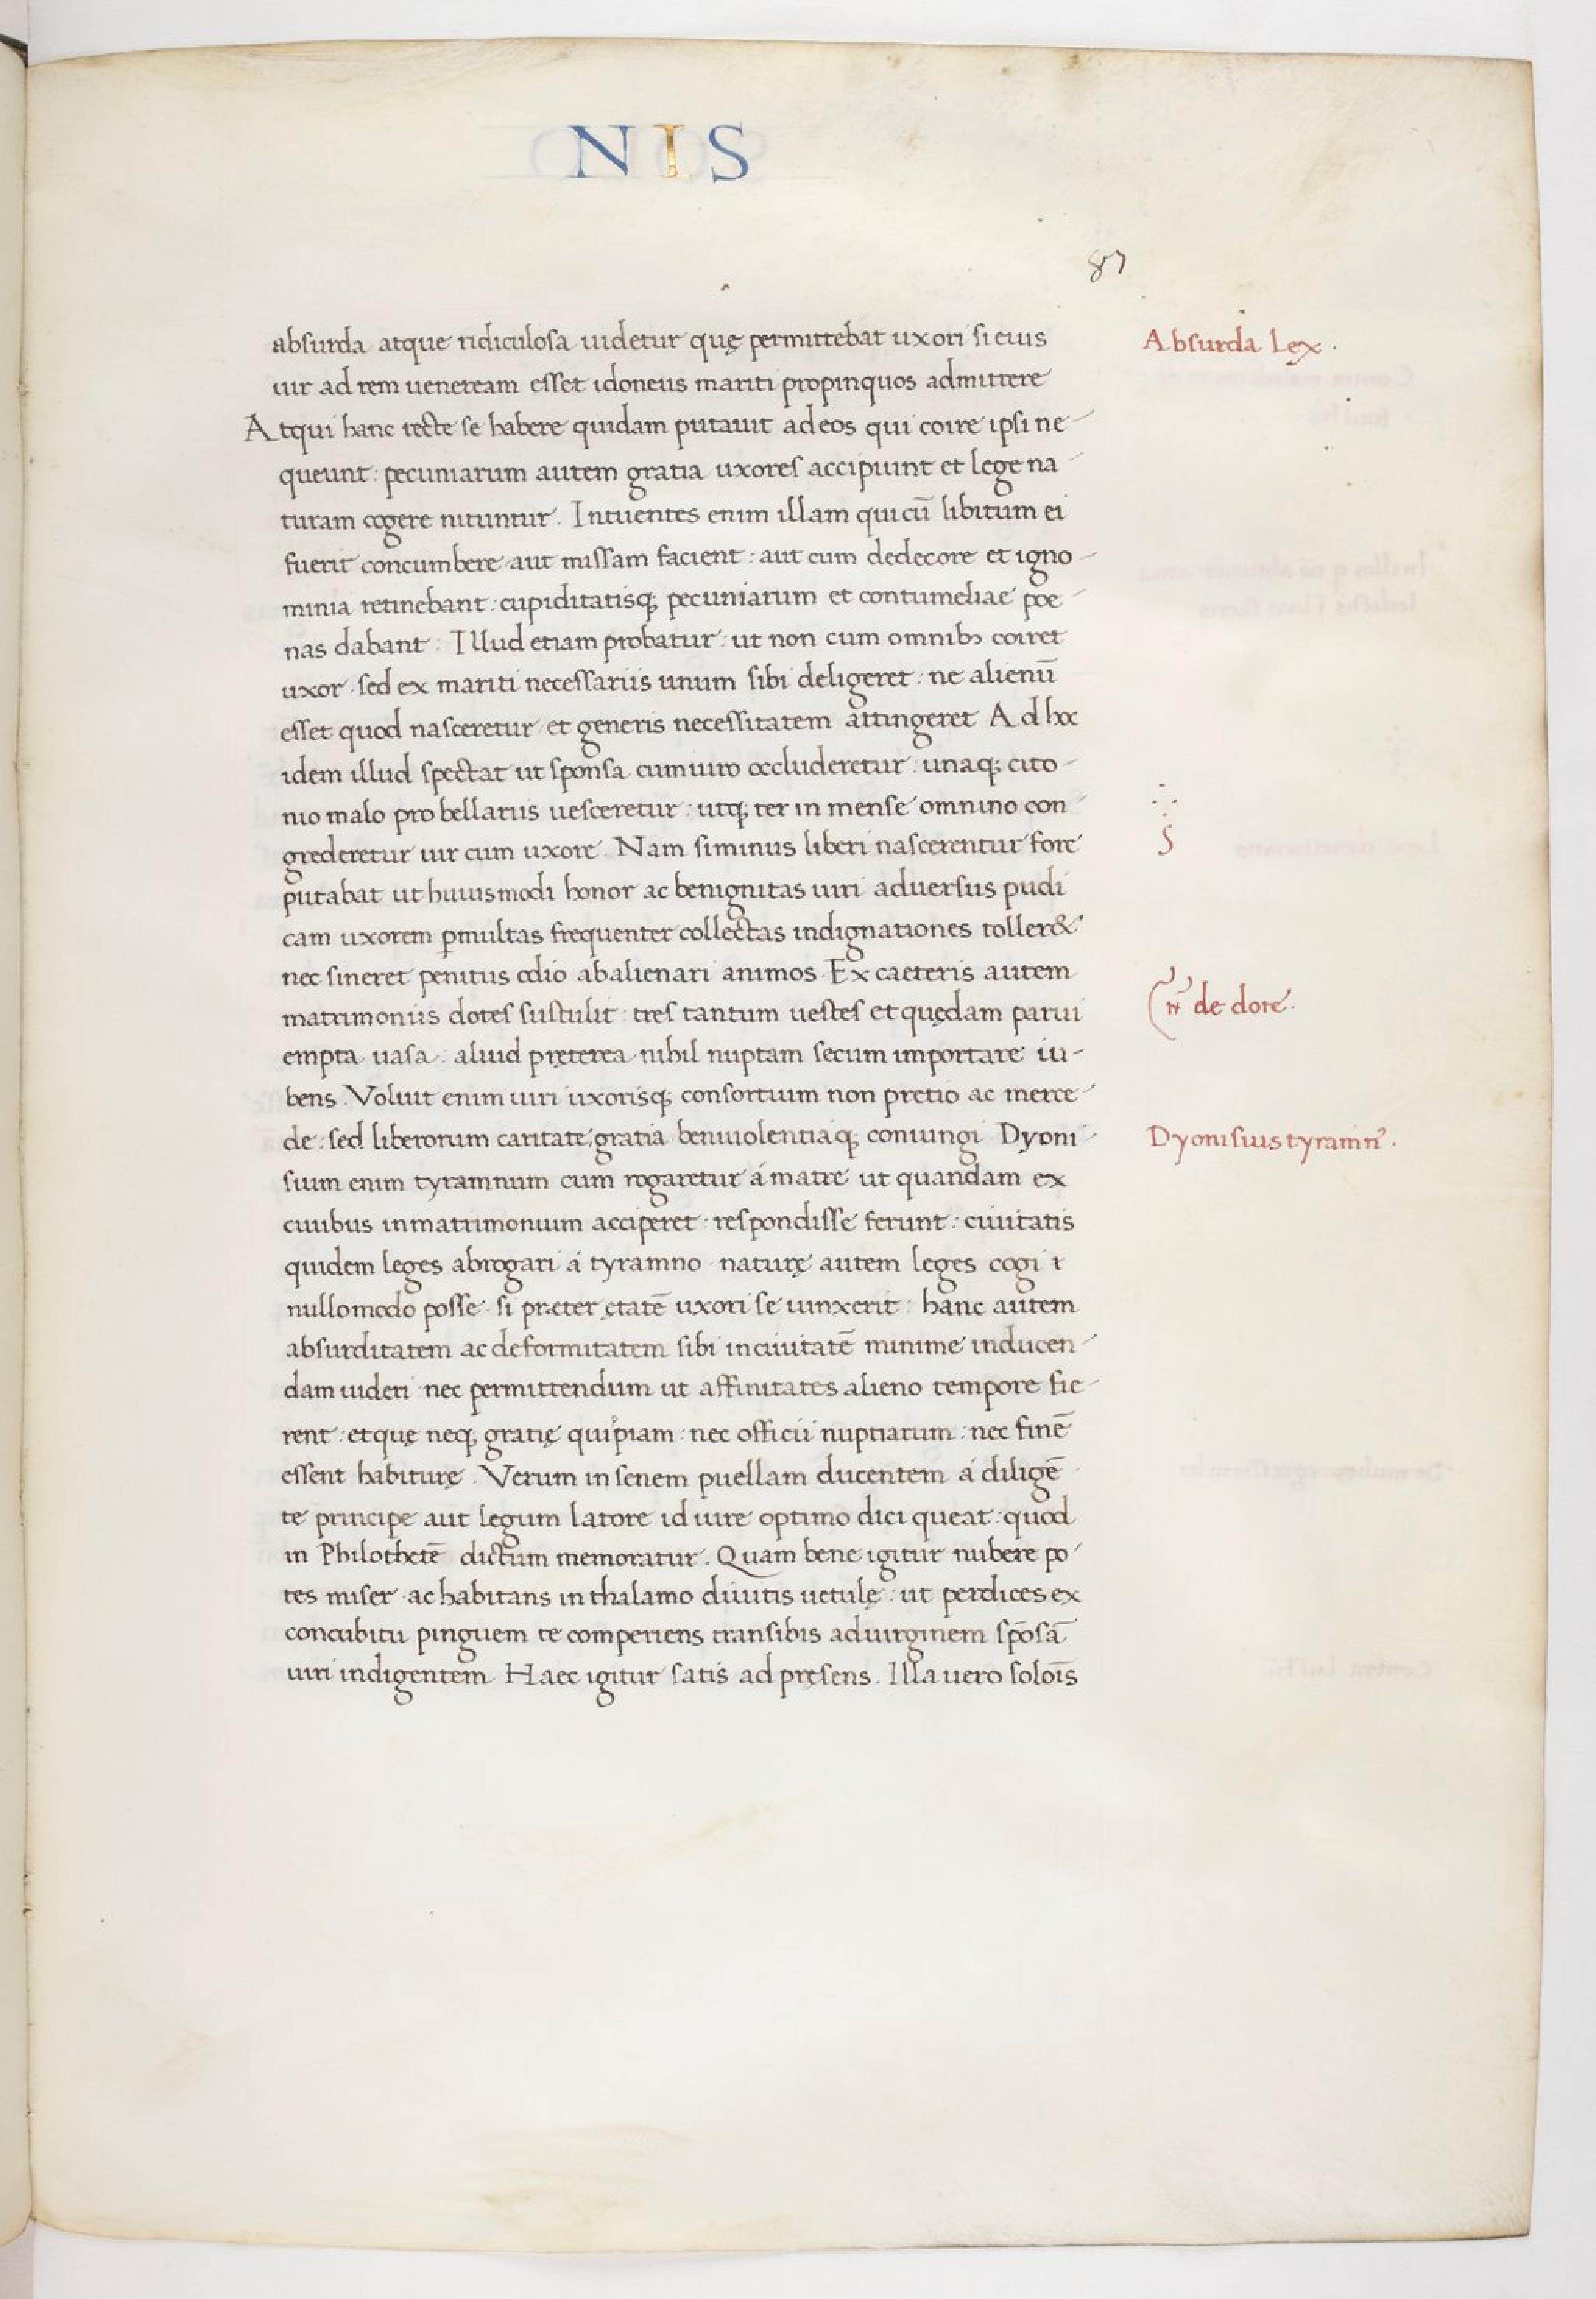 NIS
87
absurda atque ridiculosa uidetur quę permittebat uxori si eius
uir ad rem uenerem esset idoneus mariti propinquos admittere
Atqui hanc recte se habere quidam putauit ad eos qui coire ipsi ne-
queunt: pecuniarum autem gratia uxores accipiunt et lege na-
turam cogere nituntur. Intuentes enim illam qui cū libitum ei
fuerit concumbere aut missam facient: aut cum dedecore et igno-
minia retinebant: cupiditatisq; pecuniarum et contumeliae poe-
nas dabant: Illud etiam probatur: ut non cum omnibꝫ coiret
uxor. sed ex mariti necessariis unum sibi deligeret: ne alienū
esset quod nasceretur et generis necessitatem attingeret Ad hoc
idem illud spectat ut sponsa cum uiro occluderetur: unaq; cito-
nio malo pro bellariis uesceretur: utq; ter in mense omnino con-
grederetur uir cum uxore. Nam si minus liberi nascerentur fore
putabat ut huiusmodi honor ac benignitas uiri aduersus pudi
cam uxorem ꝑmultas frequenter collectas indignationes toller&
nec sineret penitus odio abalienari animos. Ex caeteris autem
matrimoniis dotes sustulit: tres tantum uestes et quędam parui
empta uasa: aliud pręterea nihil nuptam secum importare iu-
bens. Voluit enim uiri uxorisq; consortium non pretio ac merce-
de: sed liberorum caritate, gratia beniuolentiaq; coniungi. Dyoni-
sium enim tyramnum cum rogaretur á matre ut quandam ex
ciuibus in matrimonium acciperet: respondisse ferunt: ciuitatis
quidem leges abrogari á tyramno. naturę autem leges cogi
nullo modo posse. si præter ętatē uxori se uinxerit: hanc autem
absurditatem ac deformitatem sibi in ciuitatē minime inducen-
dam uideri: nec permittendum ut affinitates alieno tempore fie-
rent: et quę neq; gratię quipiam: nec officii nuptiarum: nec finē
essent habiturę. Verum in senem puellam ducentem á diligē-
te principe aut legum latore id iure optimo dici queat: quod
in Philothetē dictum memoratur. Quam bene igitur nubere po-
tes miser. ac habitans in thalamo diuitis uetulę: ut perdices ex
concubitu pinguem te comperiens transibis ad uirginem spōsā
uiri indigentem. Haec igitur satis ad pręsens. Illa uero soloīs
Absurda Lex.
de dote.
Dyonisius tyramn⁹.